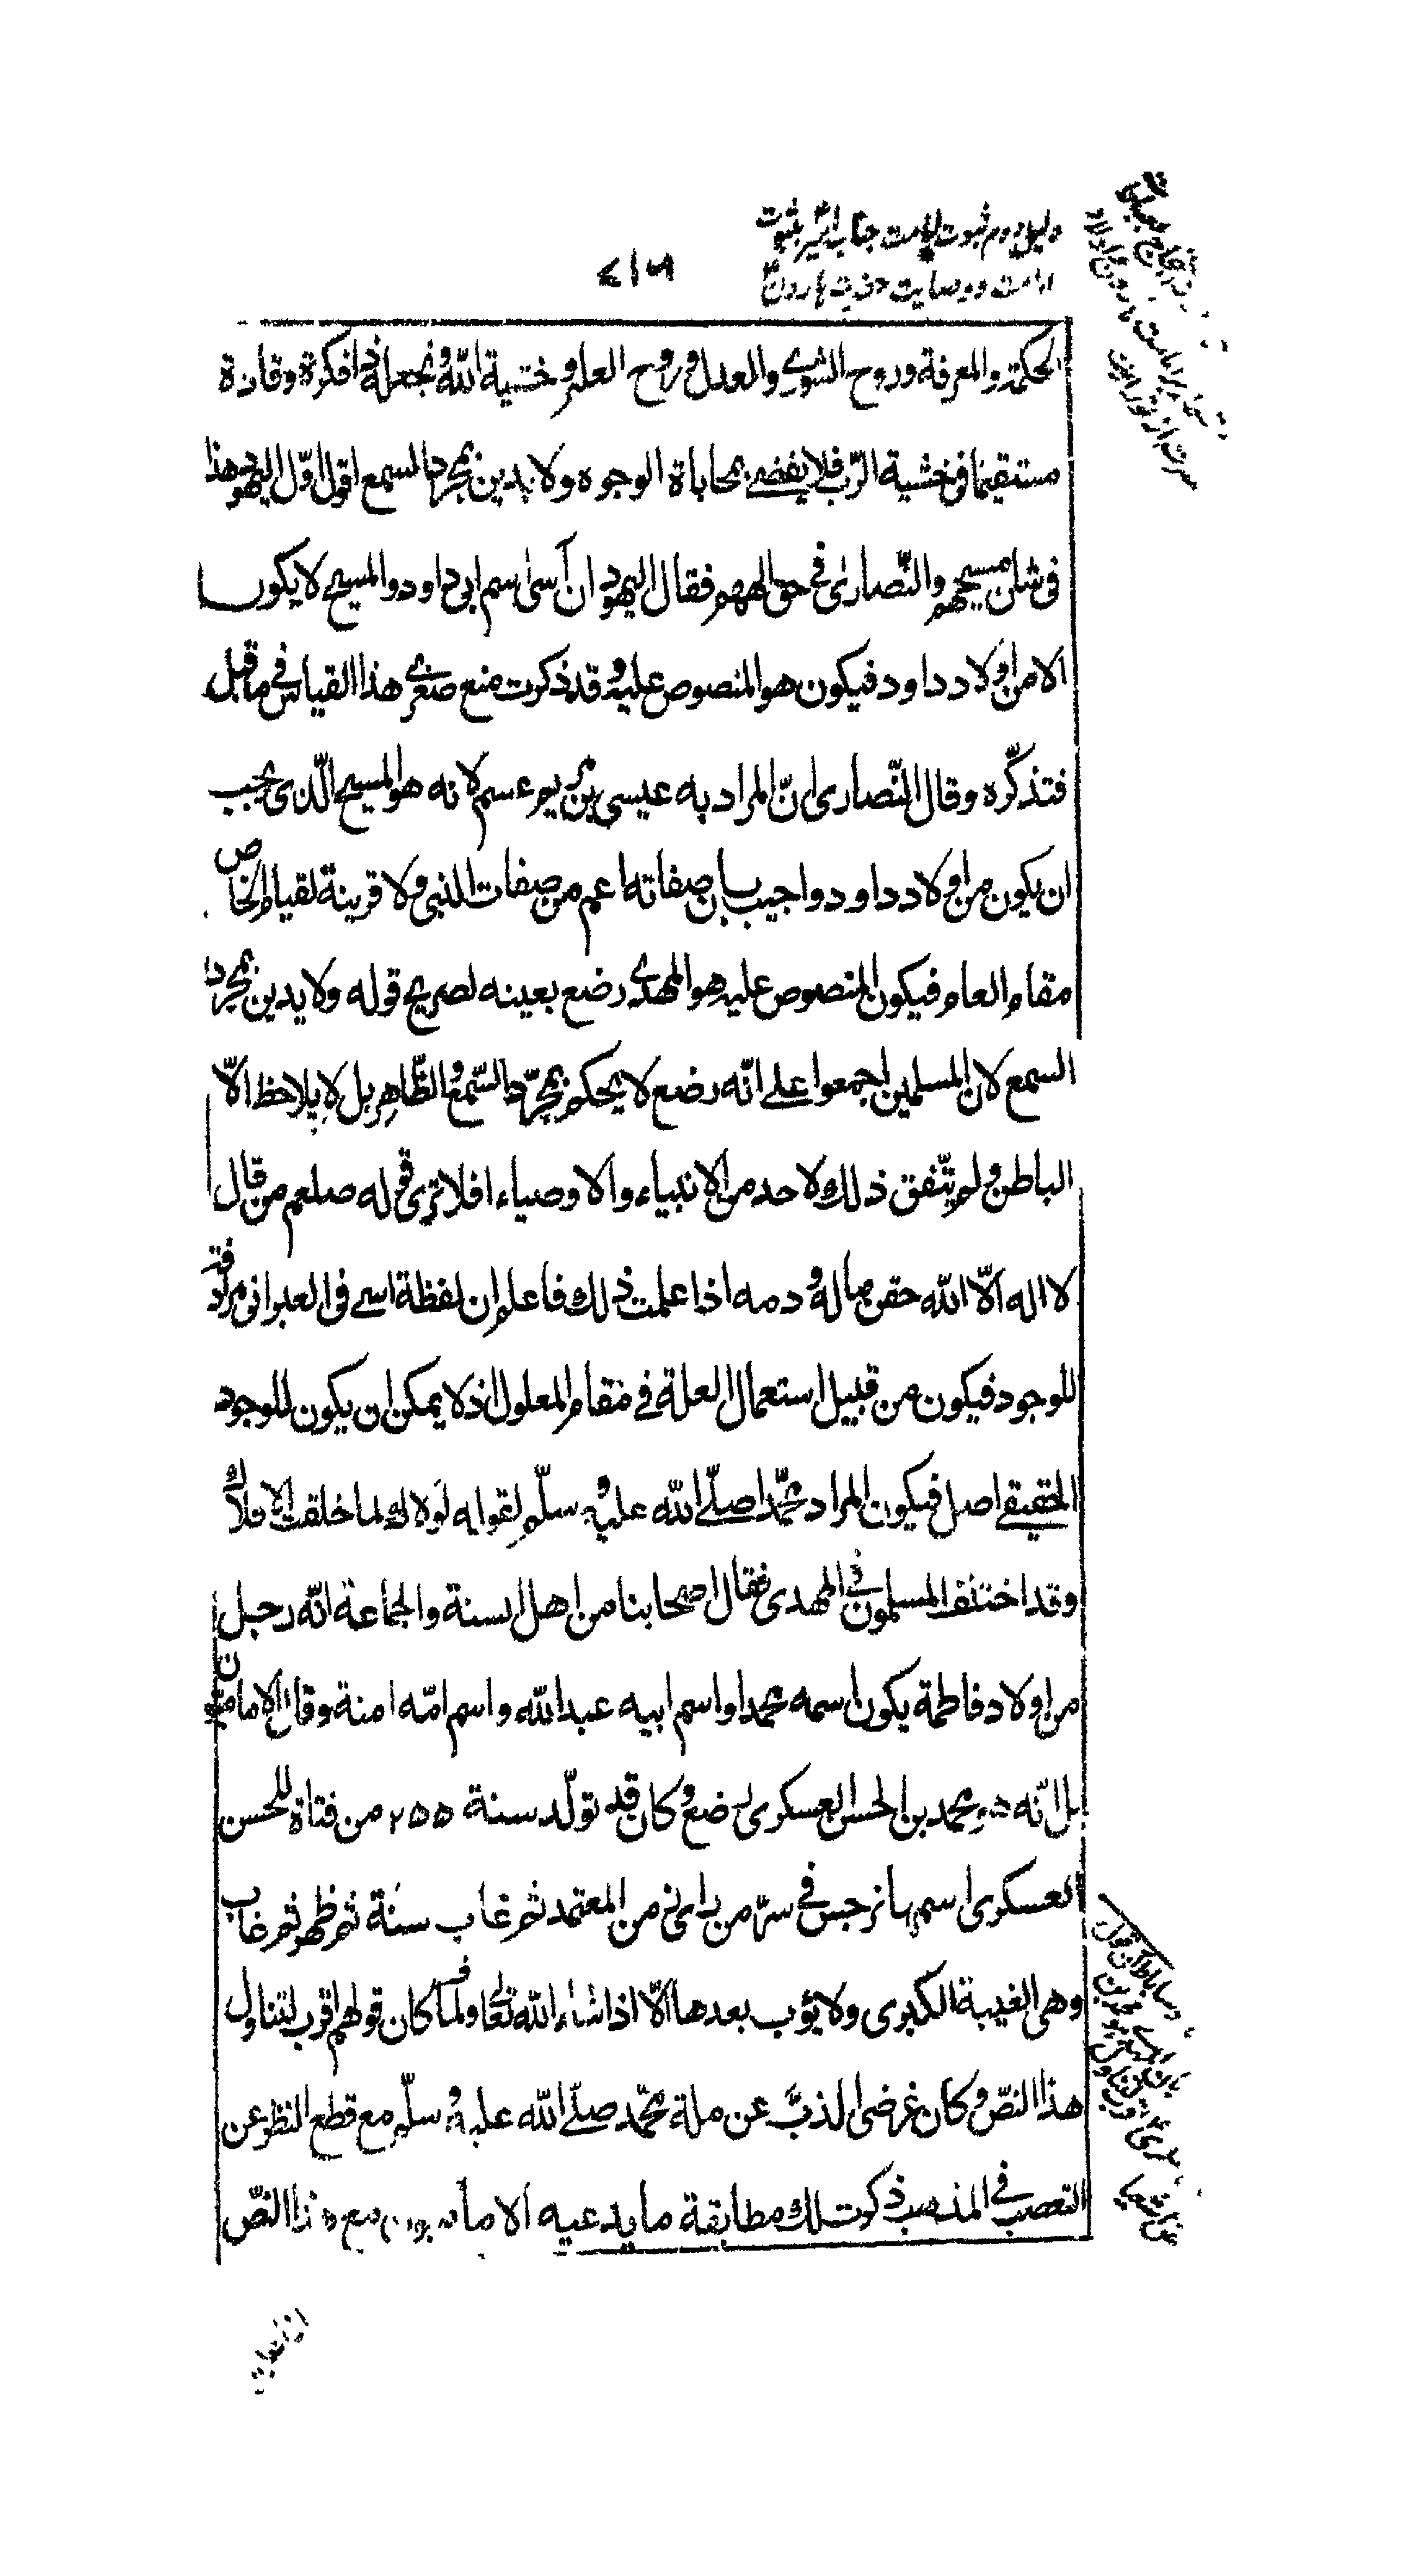 دلیل دوم ثبوت امامت جناب امیر بثبوت
امامت و وصایت حضرت هارون
۷۱۶
الحکمة والمعرفة وروح الشوری والعدل وروح العلم وخشیة الله ونجعله ذا فکرة وقادة
مستقیما فی خشیة الرب فلا یقضی بمحاباة الوجوه ولا یدین بمجرد السمع اقول اوّل الیهود هذا
فی شان مسیحهم والنّصاری فی حق الههم فقال الیهود ان آسی اسم ابی داود والمسیح لا یکون
الا من اولاد داود فیکون هو المنصوص علیه وقد ذکرت منع صغری هذا القیاس فی ما قبل
فتذکّره وقال النّصاری انّ المراد به عیسی بن مریم عسم لانه هو المسیح الّذی یجب
ان یکون من اولاد داود واجیب بان صفاته اعم من صفات النبی ولا قرینة لقیام الخاص
مقام العام فیکون المنصوص علیه هو المهدی رضع بعینه لصریح قوله ولا یدین بمجرد
السمع لان المسلمین اجمعوا علی انّه رضع لا یحکم بمجرّد السّمع والظّاهر بل لا یلاحظ الّا
الباطن ولم یتّفق ذلک لاحد من الانبیاء والاوصیاء افلا تری قوله صلعم من قال
لا اله الّا الله حقن ماله ودمه اذا علمت ذلک فاعلم ان لفظة اسی فی العبرانی مرادفة
للوجود فیکون من قبیل استعمال العلة فی مقام المعلول اذ لا یمکن ان یکون للوجود
الحقیقی اصل فیکون المراد محمّدا صلّی الله علیه وسلّم لقوله لولاک لما خلقت الافلاک
وقد اختلف المسلمون فی المهدی فقال اصحابنا من اهل السنة والجماعة انّه رجل
من اولاد فاطمة یکون اسمه محمدا واسم ابیه عبد الله واسم امّه امنة وقال الامامیّون
بل انّه هو محمد بن الحسن العسکری رضع وکان قد تولّد سنة ۲۵۵ من فتاة للحسن
العسکری اسمها نرجس فی سرّ من رای زمن المعتمد ثم غاب سنة ثم ظهر ثم غاب
وهی الغیبة الکبری ولا یؤب بعدها الّا اذا شاء الله تعا ولمّا کان قولهم اقرب لتناول
هذا النصّ وکان غرضی الذبّ عن ملة محمّد صلّی الله علیه وسلّم مع قطع النظر عن
التعصب فی المذهب ذکرت لک مطابقة ما یدعیه الامامیون مع هذا النصّ